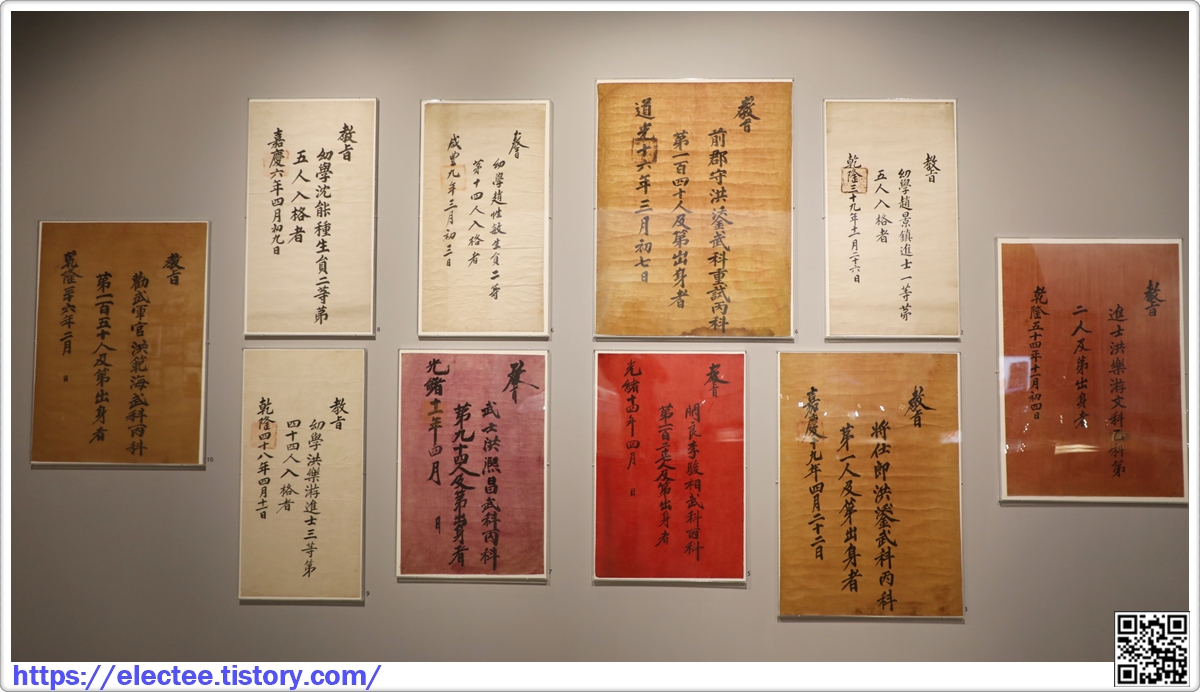 教旨
幼學沈能種生員二等第
五人入格者
嘉慶六年四月初九日
8
教旨
幼學趙性敏生員二等
第十四人入格者
咸豊九年三月初三日
6
教旨
前郡守洪鎏武科重試丙科
第一百四十人及第出身者
道光十六年三月初七日
4
教旨
幼學趙景鎮進士一等第
五人入格者
乾隆三十九年十二月二十六日
教旨
勸武軍官洪範海武科丙科
第一百五十人及第出身者
六年二月 日
10
教旨
進士洪樂游文科乙科第
二人及第出身者
乾隆五十四年十一月初四日
教旨
幼學洪樂游進士三等第
四十四人入格者
乾隆四十八年四月十一日
9
武士洪熈昌武科丙科
第九十四人及第出身者
光緒十一年四月 日
7
教旨
閑良李駿相武科丙科
人及第出身者
光緒十四年四月 日
5
教旨
將仕郎洪鎏武科丙科
第一人及第出身者
嘉慶十九年四月二十二日
3
https://electee.tistory.com/